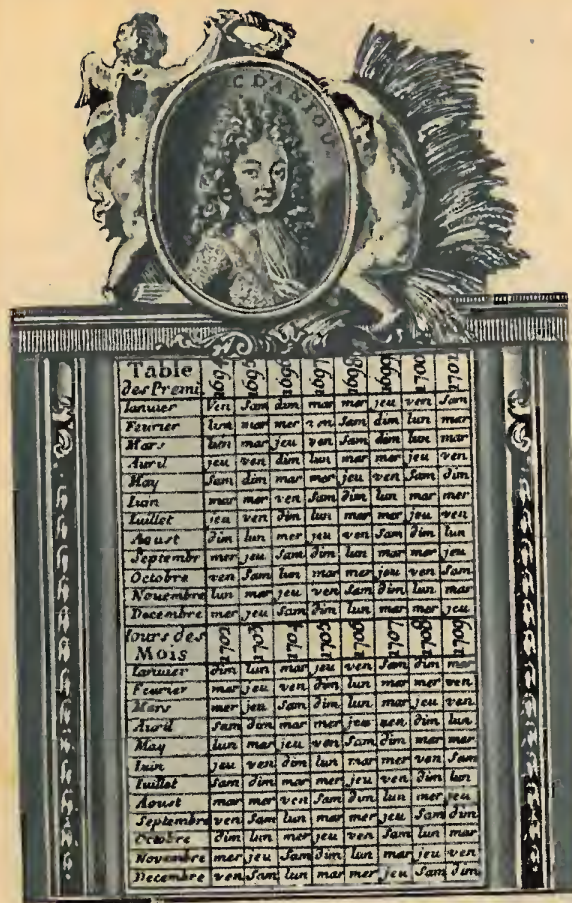 C D'ANIOU
Table 1694 1695 1696 1697 1698 1699 1700 1701
des Premi.
Ianuier Ven Sam dim mar mer jeu ven Sam
Feurier lun mar mer ven Sam dim lun mar
Mars lun mar jeu ven Sam dim lun mar
Auril jeu ven dim lun mar mer jeu ven
May Sam dim mar mer jeu ven Sam dim
Iuin mar mer ven Sam dim lun mar mer
Iuillet jeu ven dim lun mar mer jeu ven
Aoust dim lun mer jeu ven Sam dim lun
Septembr mer jeu Sam dim lun mar mer jeu
Octobre ven Sam lun mar mer jeu ven Sam
Nouembre lun mar jeu ven Sam dim lun mar
Decembre mer jeu Sam dim lun mar mer jeu
Iours des 1702 1703 1704 1705 1706 1707 1708 1709
Mois
Ianuier dim lun mar jeu ven Sam dim mar
Feurier mer jeu ven dim lun mar mer ven
Mars mer jeu Sam dim lun mar jeu ven
Auril Sam dim mar mer jeu ven dim lun
May lun mar jeu ven Sam dim mar mer
Iuin jeu ven dim lun mar mer ven Sam
Iuillet Sam dim mar mer jeu ven dim lun
Aoust mar mer ven Sam dim lun mer jeu
Septembre ven Sam lun mar mer jeu Sam dim
Octobre dim lun mer jeu ven Sam lun mar
Nouembre mer jeu Sam dim lun mar jeu ven
Decembre ven Sam lun mar mer jeu Sam dim